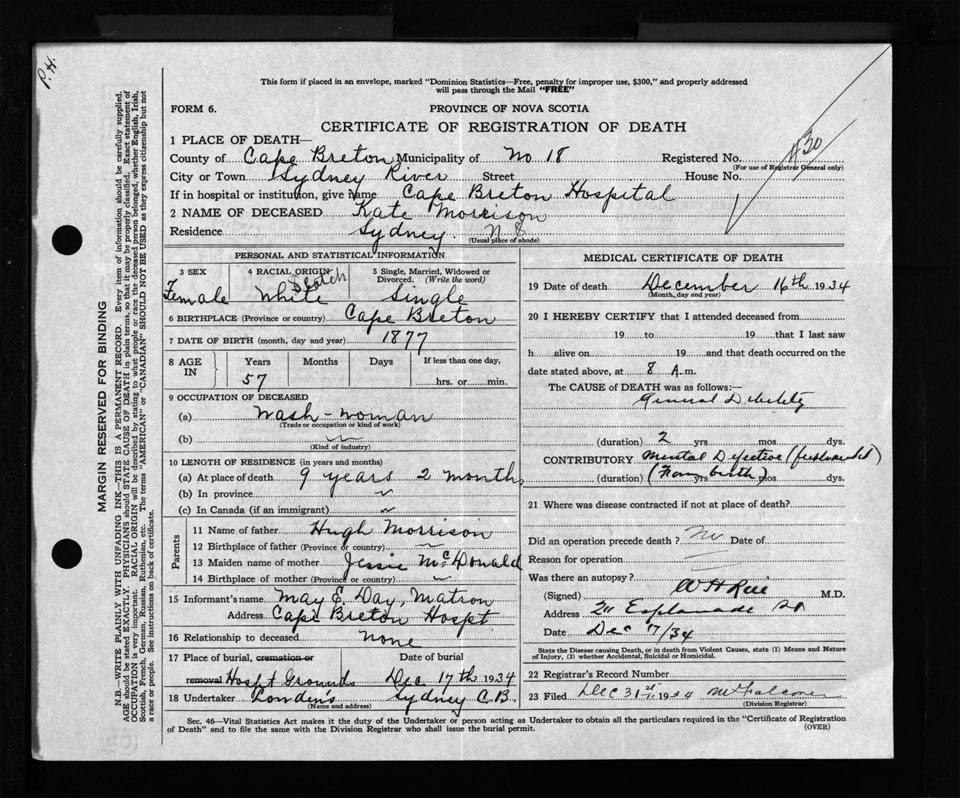 P.H.
This form if placed in an envelope, marked "Dominion Statistics—Free, penalty for improper use, $300," and properly addressed
will pass through the Mail "FREE"
FORM 6.
PROVINCE OF NOVA SCOTIA
CERTIFICATE OF REGISTRATION OF DEATH
#30
1 PLACE OF DEATH—
County of Cape Breton Municipality of No 18 Registered No.
(For use of Registrar General only)
City or Town Sydney River Street House No.
If in hospital or institution, give name Cape Breton Hospital
2 NAME OF DECEASED Kate Morrison
Residence Sydney. N.S
(Usual place of abode)
PERSONAL AND STATISTICAL INFORMATION
3 SEX 4 RACIAL ORIGIN 5 Single, Married, Widowed or
Divorced. (Write the word)
Scotch
Female White Single
6 BIRTHPLACE (Province or country) Cape Breton
7 DATE OF BIRTH (month, day and year) 1877
8 AGE IN Years Months Days If less than one day,
57 hrs. or min.
9 OCCUPATION OF DECEASED
(a) Wash-woman
(Trade or occupation or kind of work)
(b)
(Kind of industry)
10 LENGTH OF RESIDENCE (in years and months)
(a) At place of death 9 years 2 months
(b) In province
(c) In Canada (if an immigrant)
Parents
11 Name of father Hugh Morrison
12 Birthplace of father (Province or country)
13 Maiden name of mother Jessie McDonald
14 Birthplace of mother (Province or country)
15 Informant's name May E. Day, Matron
Address Cape Breton Hospt
16 Relationship to deceased None
17 Place of burial, cremation or Date of burial
removal Hospt Grounds Dec 17th 1934
18 Undertaker Londen's Sydney C.B.
(Name and address)
MEDICAL CERTIFICATE OF DEATH
19 Date of death December 16th 1934
(Month, day and year)
20 I HEREBY CERTIFY that I attended deceased from
19 to 19 that I last saw
h alive on 19 and that death occurred on the
date stated above, at 8 A.m.
The CAUSE of DEATH was as follows:—
General Debility
(duration) 2 yrs mos. dys.
CONTRIBUTORY Mental Defective
(duration) (From birth) yrs mos. dys.
21 Where was disease contracted if not at place of death?
Did an operation precede death? No Date of
Reason for operation
Was there an autopsy?
(Signed) M.D.
Address 211 Esplanade
Date Dec 17/34
State the Disease causing Death, or in death from Violent Causes, state (1) Means and Nature
of Injury, (2) whether Accidental, Suicidal or Homicidal.
22 Registrar's Record Number
23 Filed Dec 31st 1934
(Division Registrar)
Sec. 46—Vital Statistics Act makes it the duty of the Undertaker or person acting as Undertaker to obtain all the particulars required in the "Certificate of Registration
of Death" and to file the same with the Division Registrar who shall issue the burial permit.
(OVER)
MARGIN RESERVED FOR BINDING
N.B.—WRITE PLAINLY WITH UNFADING INK—THIS IS A PERMANENT RECORD. Every item of information should be carefully supplied.
AGE should be stated EXACTLY. PHYSICIANS should STATE CAUSE OF DEATH in plain terms, so that it may be properly classified. Exact statement of
OCCUPATION is very important. RACIAL ORIGIN will be described by stating to what people or race the deceased person belonged, whether English, Irish,
Scottish, French, German, Russian, Ruthenian, etc. The terms "AMERICAN" or "CANADIAN" SHOULD NOT BE USED as they express citizenship but not
a race or people. See instructions on back of certificate.